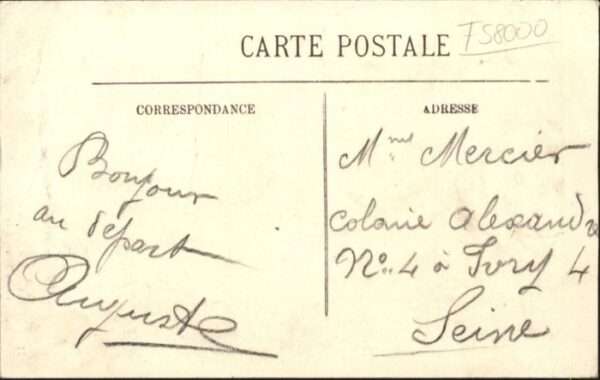 CARTE POSTALE
TS8000
CORRESPONDANCE
Bonjour
au départ
Auguste
ADRESSE
Mme Mercier
Colonie Alexandre
No. 4 à Ivry 4
Seine